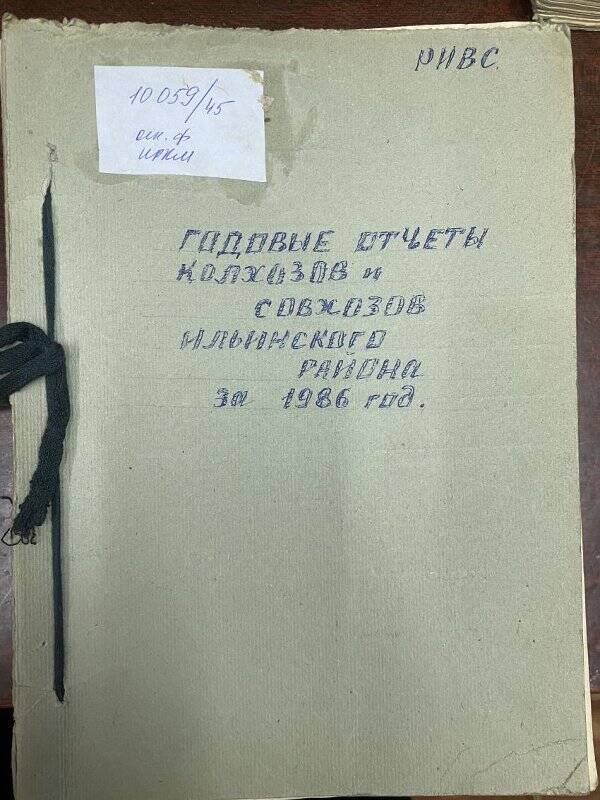 РИВС.
10059/45
оп. ф
ИРКМ
ГОДОВЫЕ ОТЧЕТЫ
КОЛХОЗОВ и
СОВХОЗОВ
ИЛЬИНСКОГО
РАЙОНА
за 1986 год.